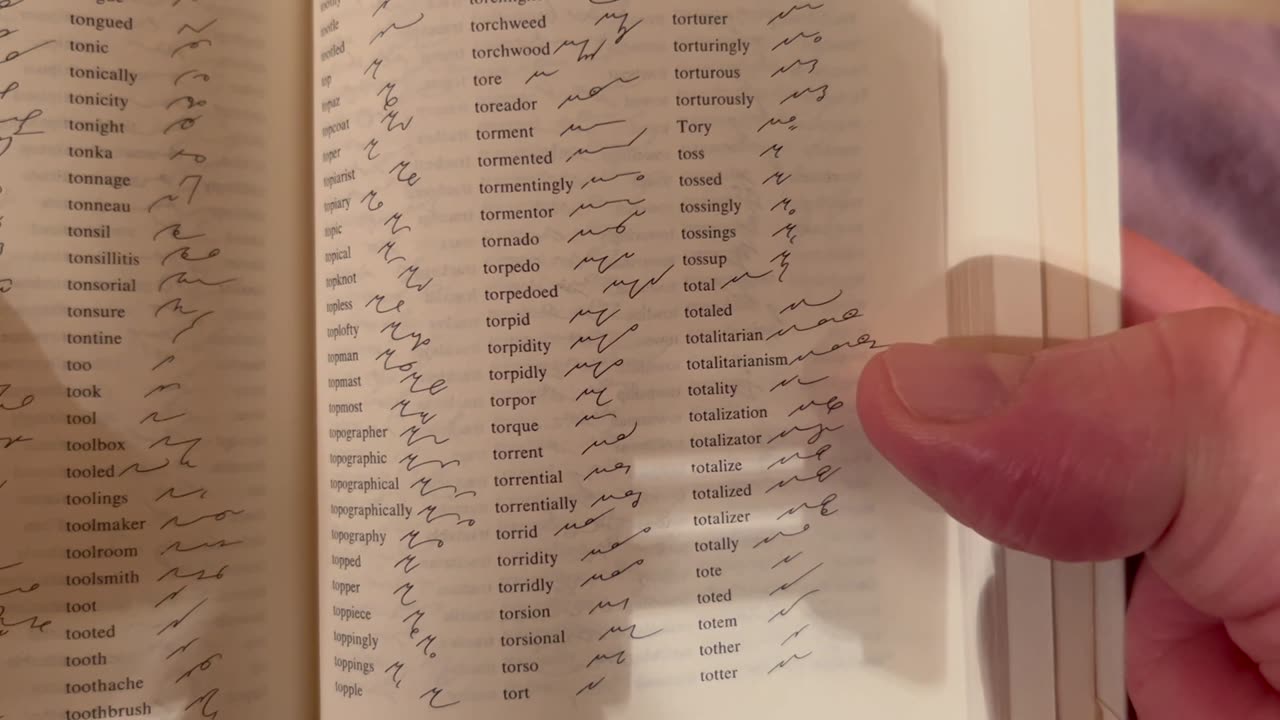 tongued
tonic
tonically
tonicity
tonight
tonka
tonnage
tonneau
tonsil
tonsillitis
tonsorial
tonsure
tontine
too
took
tool
toolbox
tooled
toolings
toolmaker
toolroom
toolsmith
toot
tooted
tooth
toothache
toothbrush
tootle
tootled
top
topaz
topcoat
toper
topiarist
topiary
topic
topical
topknot
topless
toplofty
topman
topmast
topmost
topographer
topographic
topographical
topographically
topography
topped
topper
toppiece
toppingly
toppings
topple
torchweed
torchwood
tore
toreador
torment
tormented
tormentingly
tormentor
tornado
torpedo
torpedoed
torpid
torpidity
torpidly
torpor
torque
torrent
torrential
torrentially
torrid
torridity
torridly
torsion
torsional
torso
tort
torturer
torturingly
torturous
torturously
Tory
toss
tossed
tossingly
tossings
tossup
total
totaled
totalitarian
totalitarianism
totality
totalization
totalizator
totalize
totalized
totalizer
totally
tote
toted
totem
tother
totter